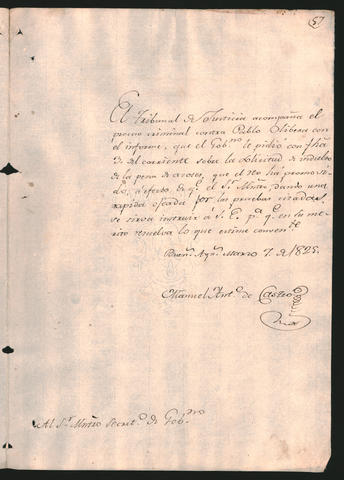 57
El Tribunal de Justicia acompaña el
proceso criminal contra Pablo con
el informe, que el Gob.no le pidió con fha
3. del corriente sobre la solicitud de indulto
de la pena de azotes, que el reo ha promovi-
do; a efecto de q.e el S.r Mntro, dando una
rapida ojeada por las pruebas citadas,
se sirva instruir á S. E. p.a q.e en su me-
rito resuelva lo que estime conven.te
Buen.s Ay.s Marzo 7. de 1825.
Manuel Ant.o de Castro
Al S.r Mntro Secret.o de Gob.no